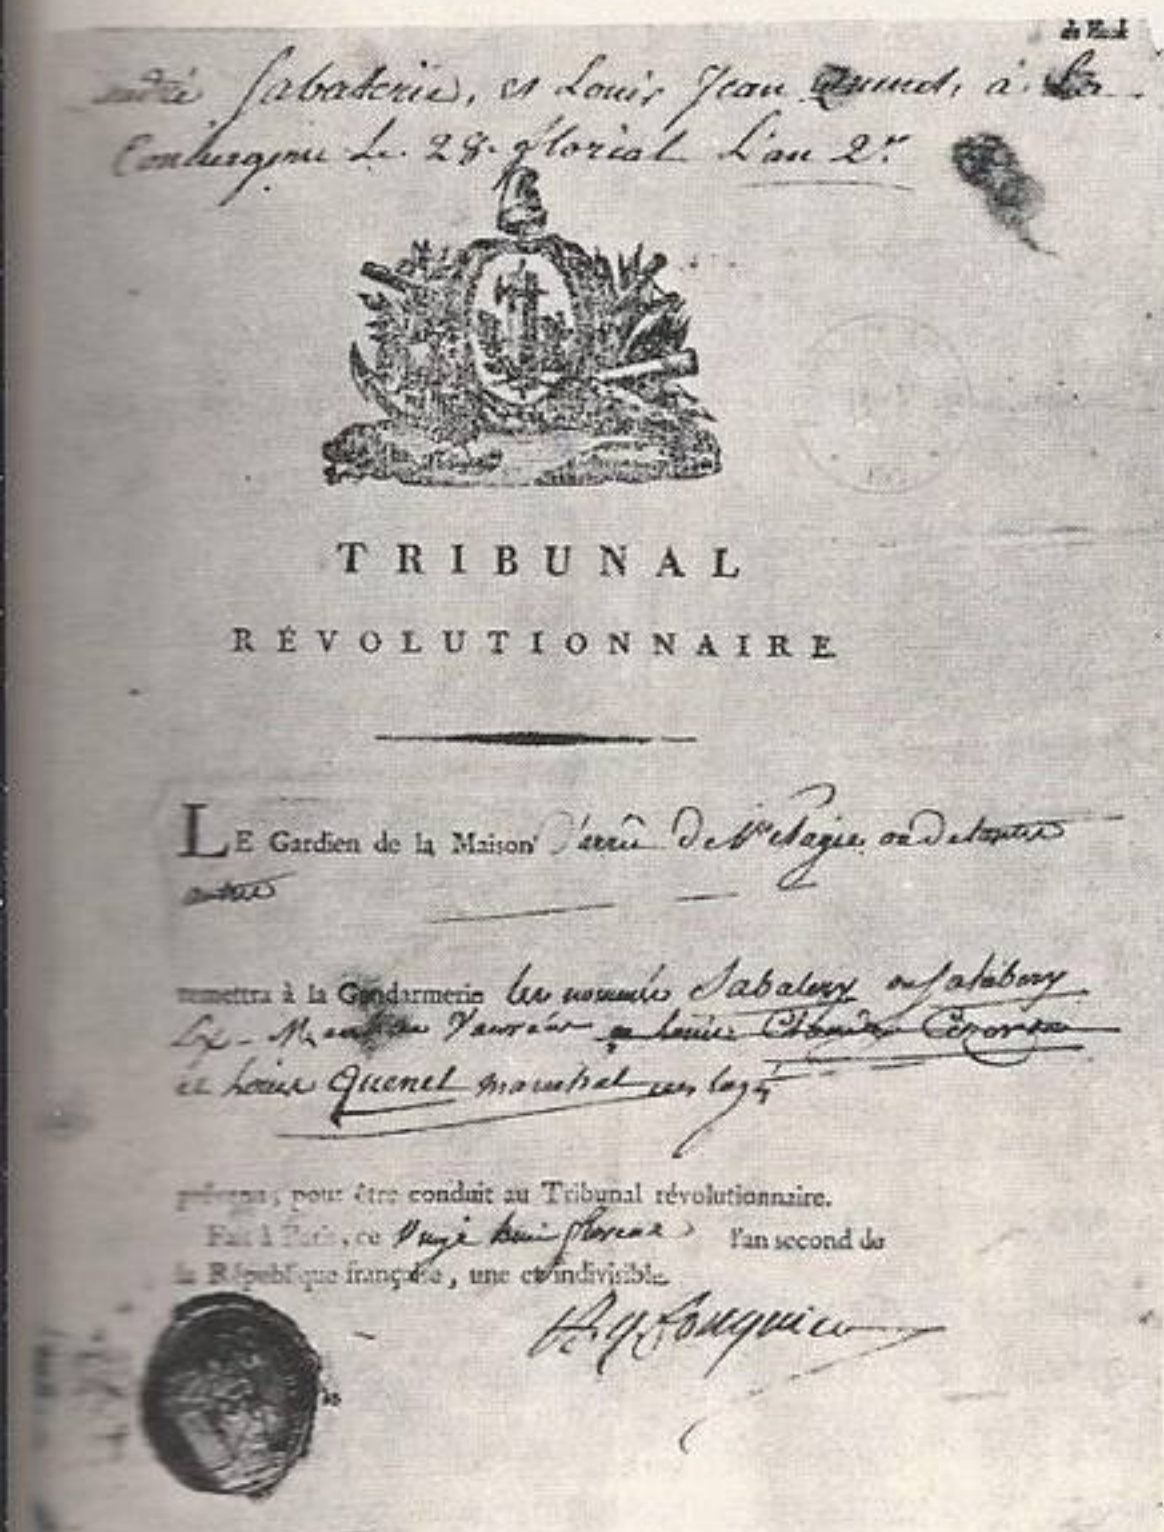 Sabaterie, et Louis Jean à la
Conciergerie le 28. floréal L'an 2.e
TRIBUNAL
RÉVOLUTIONNAIRE
LE Gardien de la Maison d'arrêt De Pélagie ou de toute
autre
remettra à la Gendarmerie les nommés Sabatery ou Salabery
et Louis Quenet marechal
prévenus, pour être conduit au Tribunal révolutionnaire.
Fait à Paris, ce Vingt huit floreal l'an second de
la République françaíse, une et indivisible.
A. q. Fouquier